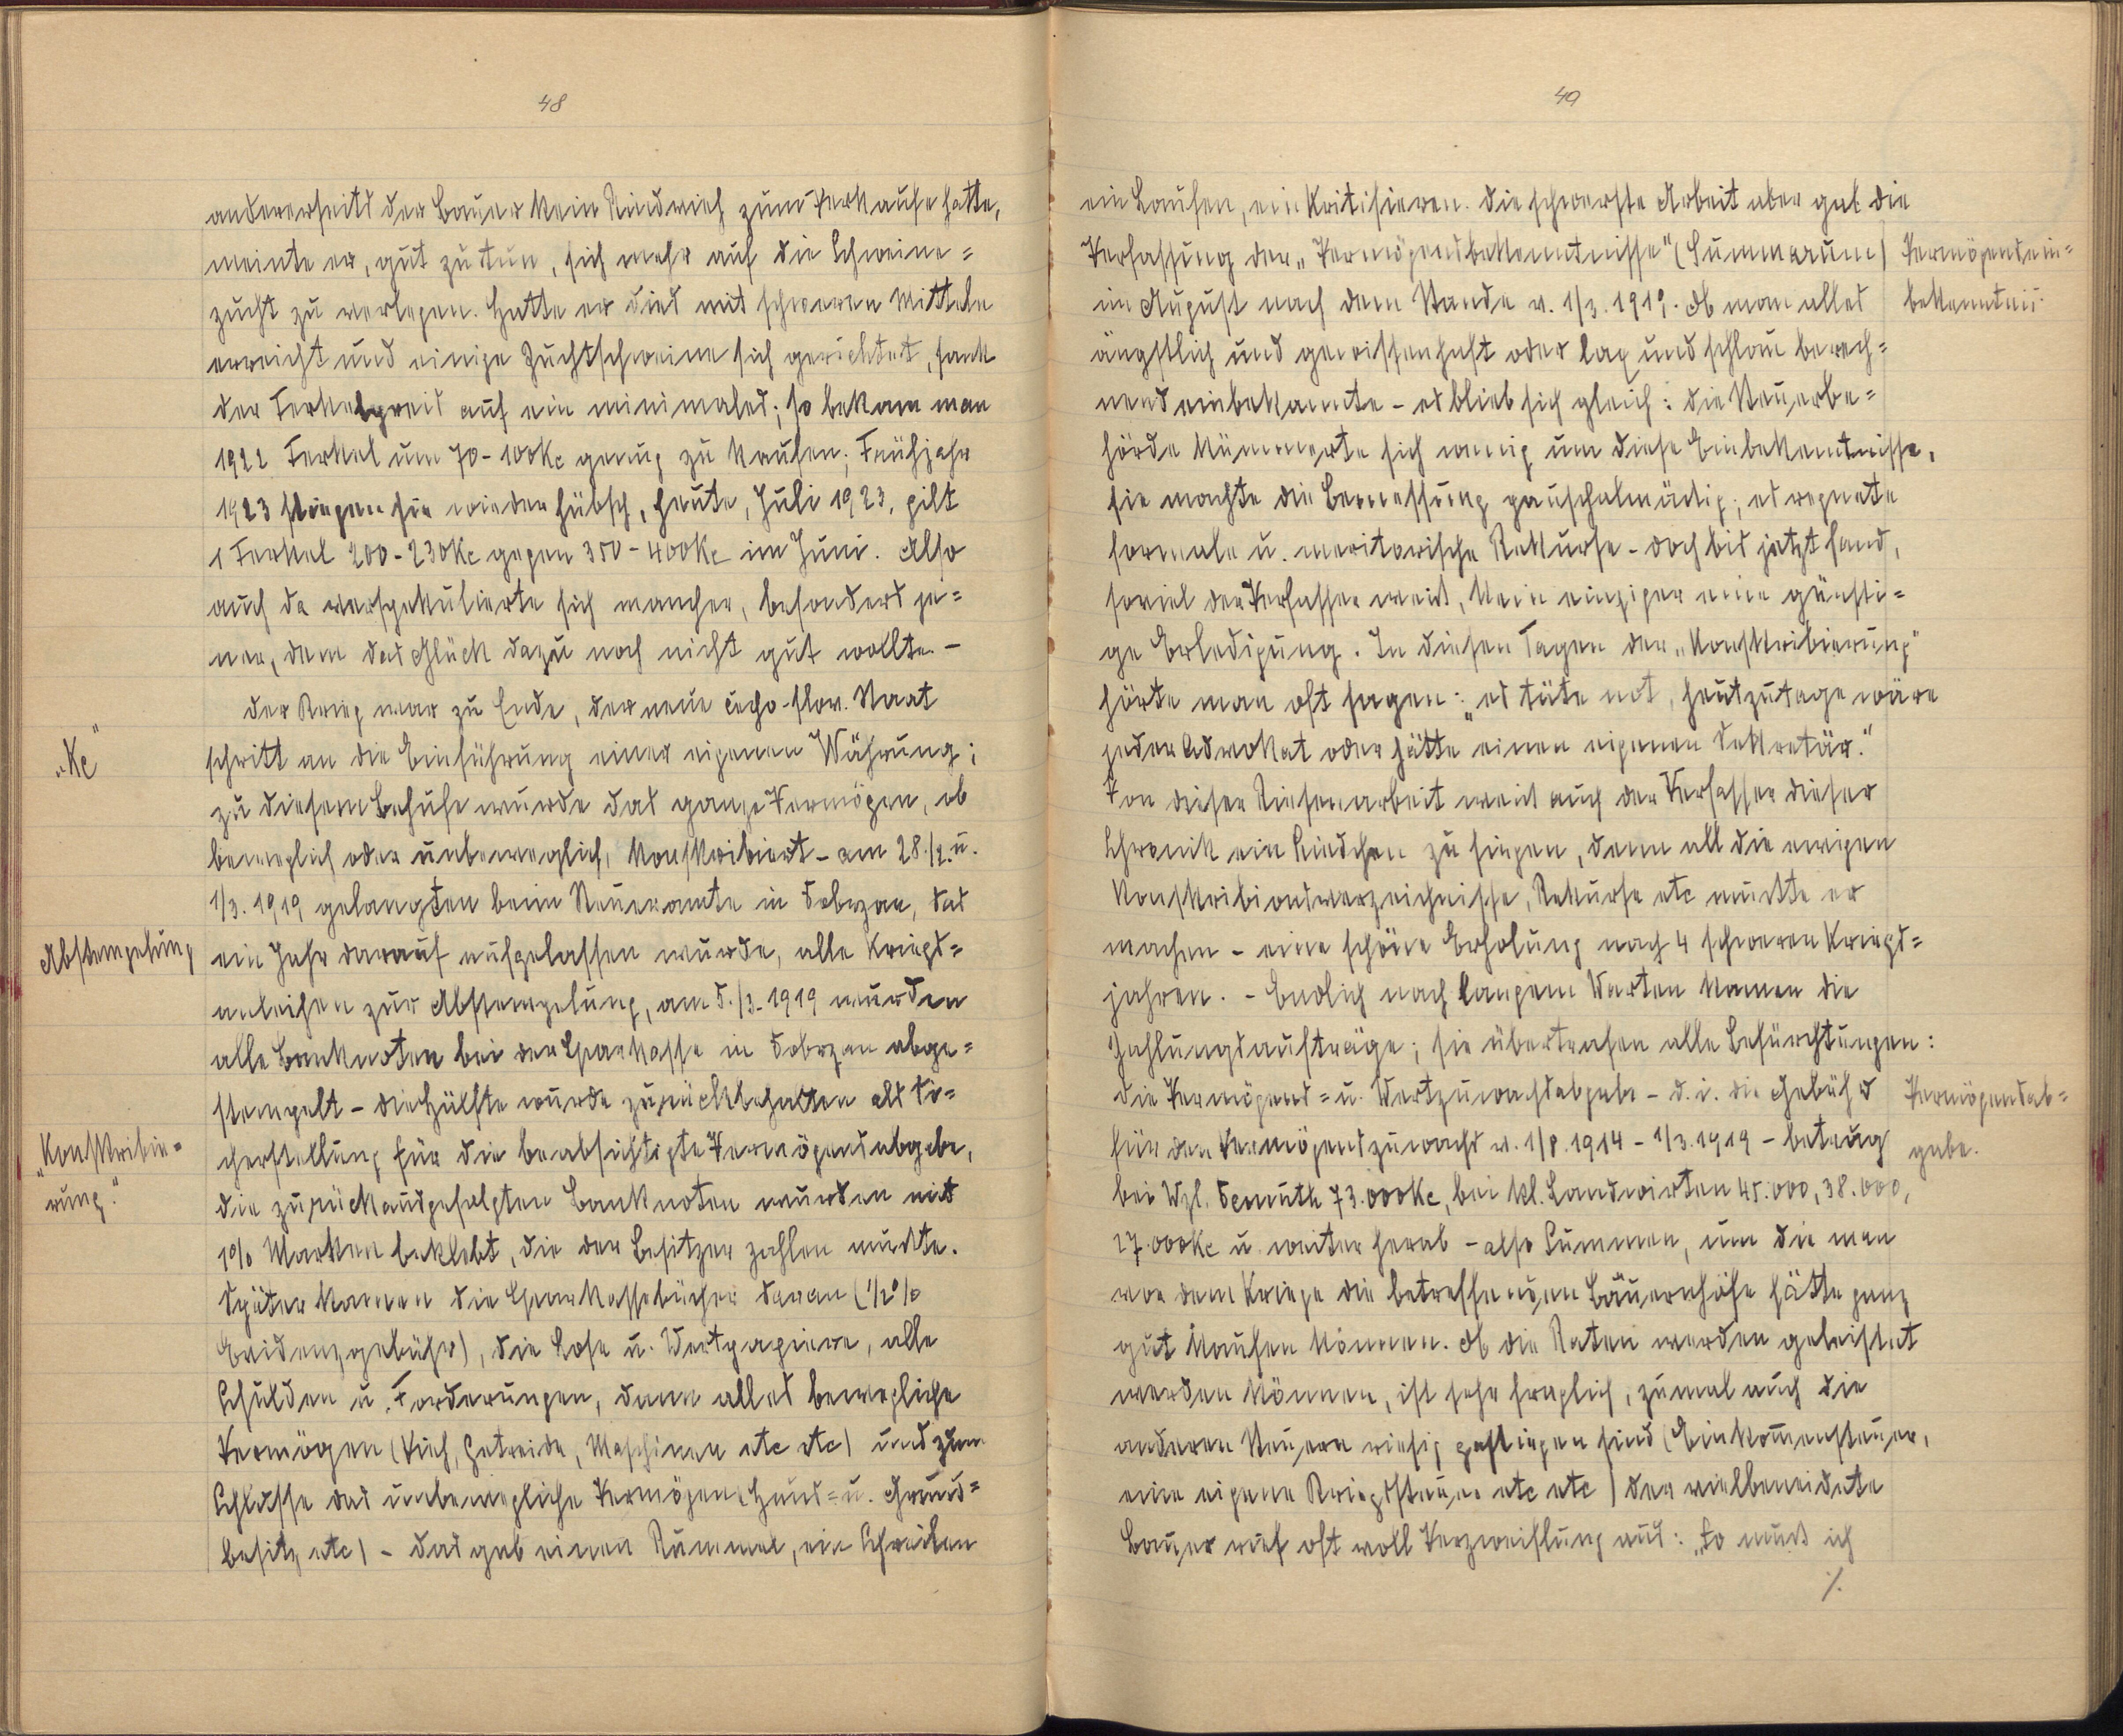 48
andererseits der Bauer kein Rindvieh zum Verkaufe hatte,
meinte er, gut zu tun, sich mehr auf die Schweine=
zucht zu verlegen. Hatte er dies mit schweren Mitteln
erreicht und einige Zuchtschweine sich gerichtet, sank
der Ferkelpreis auf ein minimales; so bekam man
1922 Ferkel um 70-100Kc genug zu kaufen; Frühjahr
1923 stiegen sie wieder hübsch, heute, Juli 1923, gilt
1 Ferkel 200-230Kc gegen 350-400Kc im Juni. Also
auch da verspekulierte sich mancher, besonders je=
ner, dem das Glück dazu noch nicht gut wollte.-
Der Krieg war zu Ende, der neue čecho-slow. Staat
„Kc"
schritt an die Einführung einer eigenen Währung;
zu diesem Behufe wurde das ganze Vermögen, ob
beweglich oder unbeweglich, konskribiert - am 28./2. u.
1/3. 1919 gelangten beim Steueramte in Dobrzan, das
Abstempelung
ein Jahr darauf aufgelassen wurde, alle Kriegs=
anleihen zur Abstempelung, am 5./3. 1919 wurden
alle Banknoten bei der Sparkasse in Dobrzan abge=
stempelt - die Hälfte wurde zurückbehalten als Si=
„Konskribie=
cherstellung für die beabsichtigte Vermögensabgabe,
rung."
die zurückausgefolgten Banknoten wurden mit
1% Marken beklebt, die der Besitzer zahlen mußte.
Später kamen die Sparkassebücher daran (1/2%
Evidenzgebühr), die Lose u. Wertpapiere, alle
Schulden u. Forderungen, dann alles bewegliche
Vermögen (Vieh, Getreide, Maschinen etc etc) und zum
Schlusse das unbewegliche Vermögen (Haus= u. Grund=
besitz etc) - das gab einen Rummel, ein Schreiben
49
ein Laufen, ein Kritisieren. Die schwerste Arbeit aber gab die
Verfassung der „Vermögensbekenntnisse" (Summarum)
Vermögensein=
im August nach dem Stande v. 1/3. 1919. Ob man alles
bekenntnis.
ängstlich und gewissenhaft oder lax und schlau berech=
nend einbekannte - es blieb sich gleich: die Steuerbe=
hörde kümmerte sich wenig um diese Einbekenntnisse,
sie machte die Bemessung pauschalmäßig; es regnete
formale u. meritorische Rekurse - doch bis jetzt fand,
soviel der Verfasser weiß, kein einziger eine günsti=
ge Erledigung. In diesen Tagen der „Konskribierung"
hörte man oft sagen: „es täte not, heutzutage wäre
jeder Advokat oder hätte einen eigenen Sekretär."
Von dieser Riesenarbeit weiß auch der Verfasser dieser
Chronik ein Liedchen zu singen, denn all die ewigen
Konskribionsverzeichnisse, Rekurse etc mußte er
machen - eine schöne Erholung nach 4 schweren Kriegs=
jahren. - Endlich nach langem Warten kamen die
Zahlungsaufträge; sie übertrafen alle Befürchtungen:
die Vermögens= u. Wertzuwachsabgabe - d. i. die Gebühr
Vermögensab=
für den Vermögenszuwachs v. 1/8. 1914 - 1/3. 1919 - betrug
gabe.
bei Wzl. Demuth 73.000Kc, bei kl. Landwirten 45.000, 38.000,
27.000Kc u. weiter herab - also Summen, um die man
vor dem Kriege die betreffenden Bauernhöfe hätte ganz
gut kaufen können. Ob die Raten werden geleistet
werden können, ist sehr fraglich, zumal auch die
anderen Steuern riesig gestiegen sind (Einkommensteuer,
eine eigene Kriegssteuer etc etc) der vielbeneidete
Bauer rief oft voll Verzweiflung aus: „So muß ich
./.